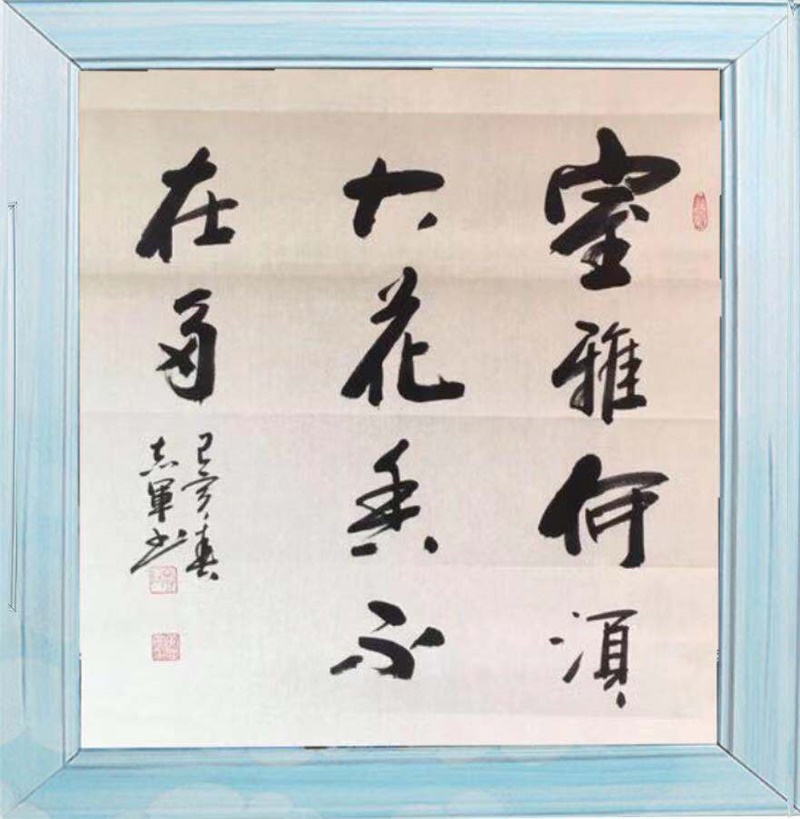 室雅何須
大花香不
在多
己亥春
志軍书